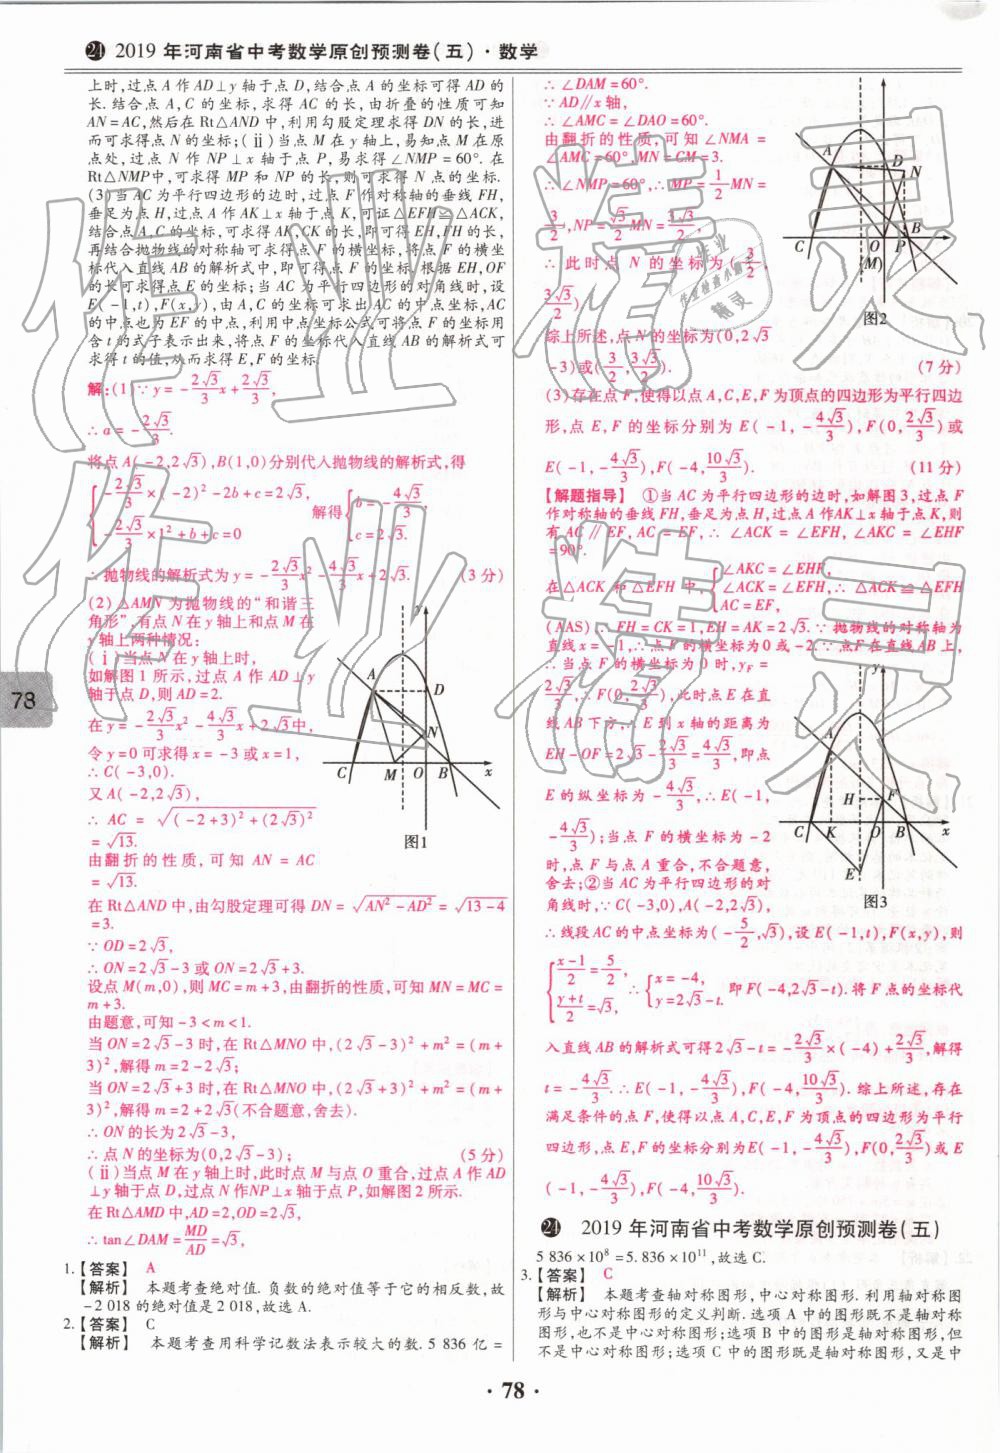 ㉔ 2019 年河南省中考数学原创预测卷(五)·数学
上时,过点 A 作 AD⊥y 轴于点 D,结合点 A 的坐标可得 AD 的
长.结合点 A,C 的坐标,求得 AC 的长,由折叠的性质可知
AN=AC,然后在 Rt△AND 中,利用勾股定理求得 DN 的长,进
而可求得点 N 的坐标;(ⅱ)当点 M 在 y 轴上,易知点 M 在原
点处,过点 N 作 NP⊥x 轴于点 P,易求得∠NMP=60°.在
Rt△NMP中,可求得 MP 和 NP 的长,则可求得 N 点的坐标.
(3)当 AC 为平行四边形的边时,过点 F 作对称轴的垂线 FH,
垂足为点 H,过点 A 作 AK⊥x 轴于点 K,可证△EFH≌△ACK,
结合点 A,C 的坐标,可求得 AK,CK 的长,即可得 EH,FH 的长,
再结合抛物线的对称轴可求得点 F 的横坐标,将点 F 的横坐
标代入直线 AB 的解析式中,即可得点 F 的坐标,根据 EH,OF
的长可求得点 E 的坐标;当 AC 为平行四边形的对角线时,设
E(-1,t),F(x,y),由 A,C 的坐标可求出 AC 的中点坐标,AC
的中点也为 EF 的中点,利用中点坐标公式可将点 F 的坐标用
含 t 的式子表示出来,将点 F 的坐标代入直线 AB 的解析式可
求得 t 的值,从而求得 E,F 的坐标.
解:(1)∵y=-2√3/3x+2√3/3,
∴a=-2√3/3.
将点 A(-2,2√3),B(1,0)分别代入抛物线的解析式,得
{-2√3/3×(-2)²-2b+c=2√3, -2√3/3×1²+b+c=0 解得{b=-4√3/3, c=2√3.
∴抛物线的解析式为 y=-2√3/3x²-4√3/3x+2√3. (3 分)
(2)△AMN 为抛物线的“和谐三
角形”,有点 N 在 y 轴上和点 M 在
y 轴上两种情况:
(ⅰ)当点 N 在 y 轴上时,
如解图 1 所示,过点 A 作 AD⊥y
轴于点 D,则 AD=2.
在 y=-2√3/3x²-4√3/3x+2√3中,
令 y=0 可求得 x=-3 或 x=1,
∴C(-3,0).
又 A(-2,2√3),
∴AC=√((-2+3)²+(2√3)²)
=√13.
由翻折的性质,可知 AN=AC
=√13.
y
A D N
C M O B x
图1
在 Rt△AND 中,由勾股定理可得 DN=√(AN²-AD²)=√(13-4)
=3.
∵OD=2√3,
∴ON=2√3-3 或 ON=2√3+3.
设点 M(m,0),则 MC=m+3,由翻折的性质,可知 MN=MC=
m+3.
由题意,可知-3<m<1.
当 ON=2√3-3 时,在 Rt△MNO 中,(2√3-3)²+m²=(m+
3)²,解得 m=2-2√3;
当 ON=2√3+3 时,在 Rt△MNO 中,(2√3+3)²+m²=(m+
3)²,解得 m=2+2√3(不合题意,舍去).
∴ON 的长为 2√3-3,
∴点 N 的坐标为(0,2√3-3); (5 分)
(ⅱ)当点 M 在 y 轴上时,此时点 M 与点 O 重合,过点 A 作 AD
⊥y 轴于点 D,过点 N 作NP⊥x 轴于点 P,如解图 2 所示.
在 Rt△AMD 中,AD=2,OD=2√3,
∴tan∠DAM=MD/AD=√3,
∴∠DAM=60°.
∵AD∥x 轴,
∴∠AMC=∠DAO=60°.
由翻折的性质,可知∠NMA=
∠AMC=60°,MN=CM=3.
∴∠NMP=60°,∴MP=1/2MN=
3/2,NP=√3/2MN=3√3/2,
∴此时点 N 的坐标为(3/2,
3√3/2).
A D N
C O P B x
(M)
图2
综上所述,点 N 的坐标为(0,2√3
-3)或(3/2,3√3/2). (7 分)
(3)存在点 F,使得以点 A,C,E,F 为顶点的四边形为平行四边
形,点 E,F 的坐标分别为 E(-1,-4√3/3),F(0,2√3/3)或
E(-1,-4√3/3),F(-4,10√3/3). (11 分)
【解题指导】 ①当 AC 为平行四边形的边时,如解图 3,过点 F
作对称轴的垂线 FH,垂足为点 H,过点 A 作AK⊥x 轴于点 K,则
有 AC∥EF,AC=EF,∴∠ACK=∠EFH,∠AKC=∠EHF
=90°.
在△ACK 和△EFH 中,{∠AKC=∠EHF, ∠ACK=∠EFH, AC=EF, ∴△ACK≌△EFH
(AAS),∴FH=CK=1,EH=AK=2√3.∵抛物线的对称轴为
直线 x=-1,∴点 F 的横坐标为 0 或-2.∵点 F 在直线 AB 上,
∴当点 F 的横坐标为 0 时,yF=
2√3/3,∴F(0,2√3/3),此时点 E 在直
线 AB 下方,∴E 到 x 轴的距离为
EH-OF=2√3-2√3/3=4√3/3,即点
E 的纵坐标为-4√3/3,∴E(-1,
-4√3/3);当点 F 的横坐标为-2
时,点 F 与点 A 重合,不合题意,
舍去;②当 AC 为平行四边形的对
角线时,∵C(-3,0),A(-2,2√3),
y
A
H F
C K O B x
E
图3
∴线段 AC 的中点坐标为(-5/2,√3),设 E(-1,t),F(x,y),则
{(x-1)/2=5/2, (y+t)/2=√3, ∴{x=-4, y=2√3-t. 即 F(-4,2√3-t).将 F 点的坐标代
入直线 AB 的解析式可得 2√3-t=-2√3/3×(-4)+2√3/3,解得
t=-4√3/3.∴E(-1,-4√3/3),F(-4,10√3/3).综上所述,存在
满足条件的点 F,使得以点 A,C,E,F 为顶点的四边形为平行
四边形,点 E,F 的坐标分别为E(-1,-4√3/3),F(0,2√3/3)或 E
(-1,-4√3/3),F(-4,10√3/3).
㉔ 2019 年河南省中考数学原创预测卷(五)
1.【答案】 A
【解析】 本题考查绝对值.负数的绝对值等于它的相反数,故
-2 018 的绝对值是 2 018,故选 A.
2.【答案】 C
【解析】 本题考查用科学记数法表示较大的数.5 836 亿=
5 836×10⁸=5.836×10¹¹,故选 C.
3.【答案】 C
【解析】 本题考查轴对称图形,中心对称图形.利用轴对称图
形与中心对称图形的定义判断.选项 A 中的图形既不是轴对称
图形,也不是中心对称图形;选项 B 中的图形是轴对称图形,但
不是中心对称图形;选项 C 中的图形既是轴对称图形,又是中
78
·78·
作业精灵
作业精灵